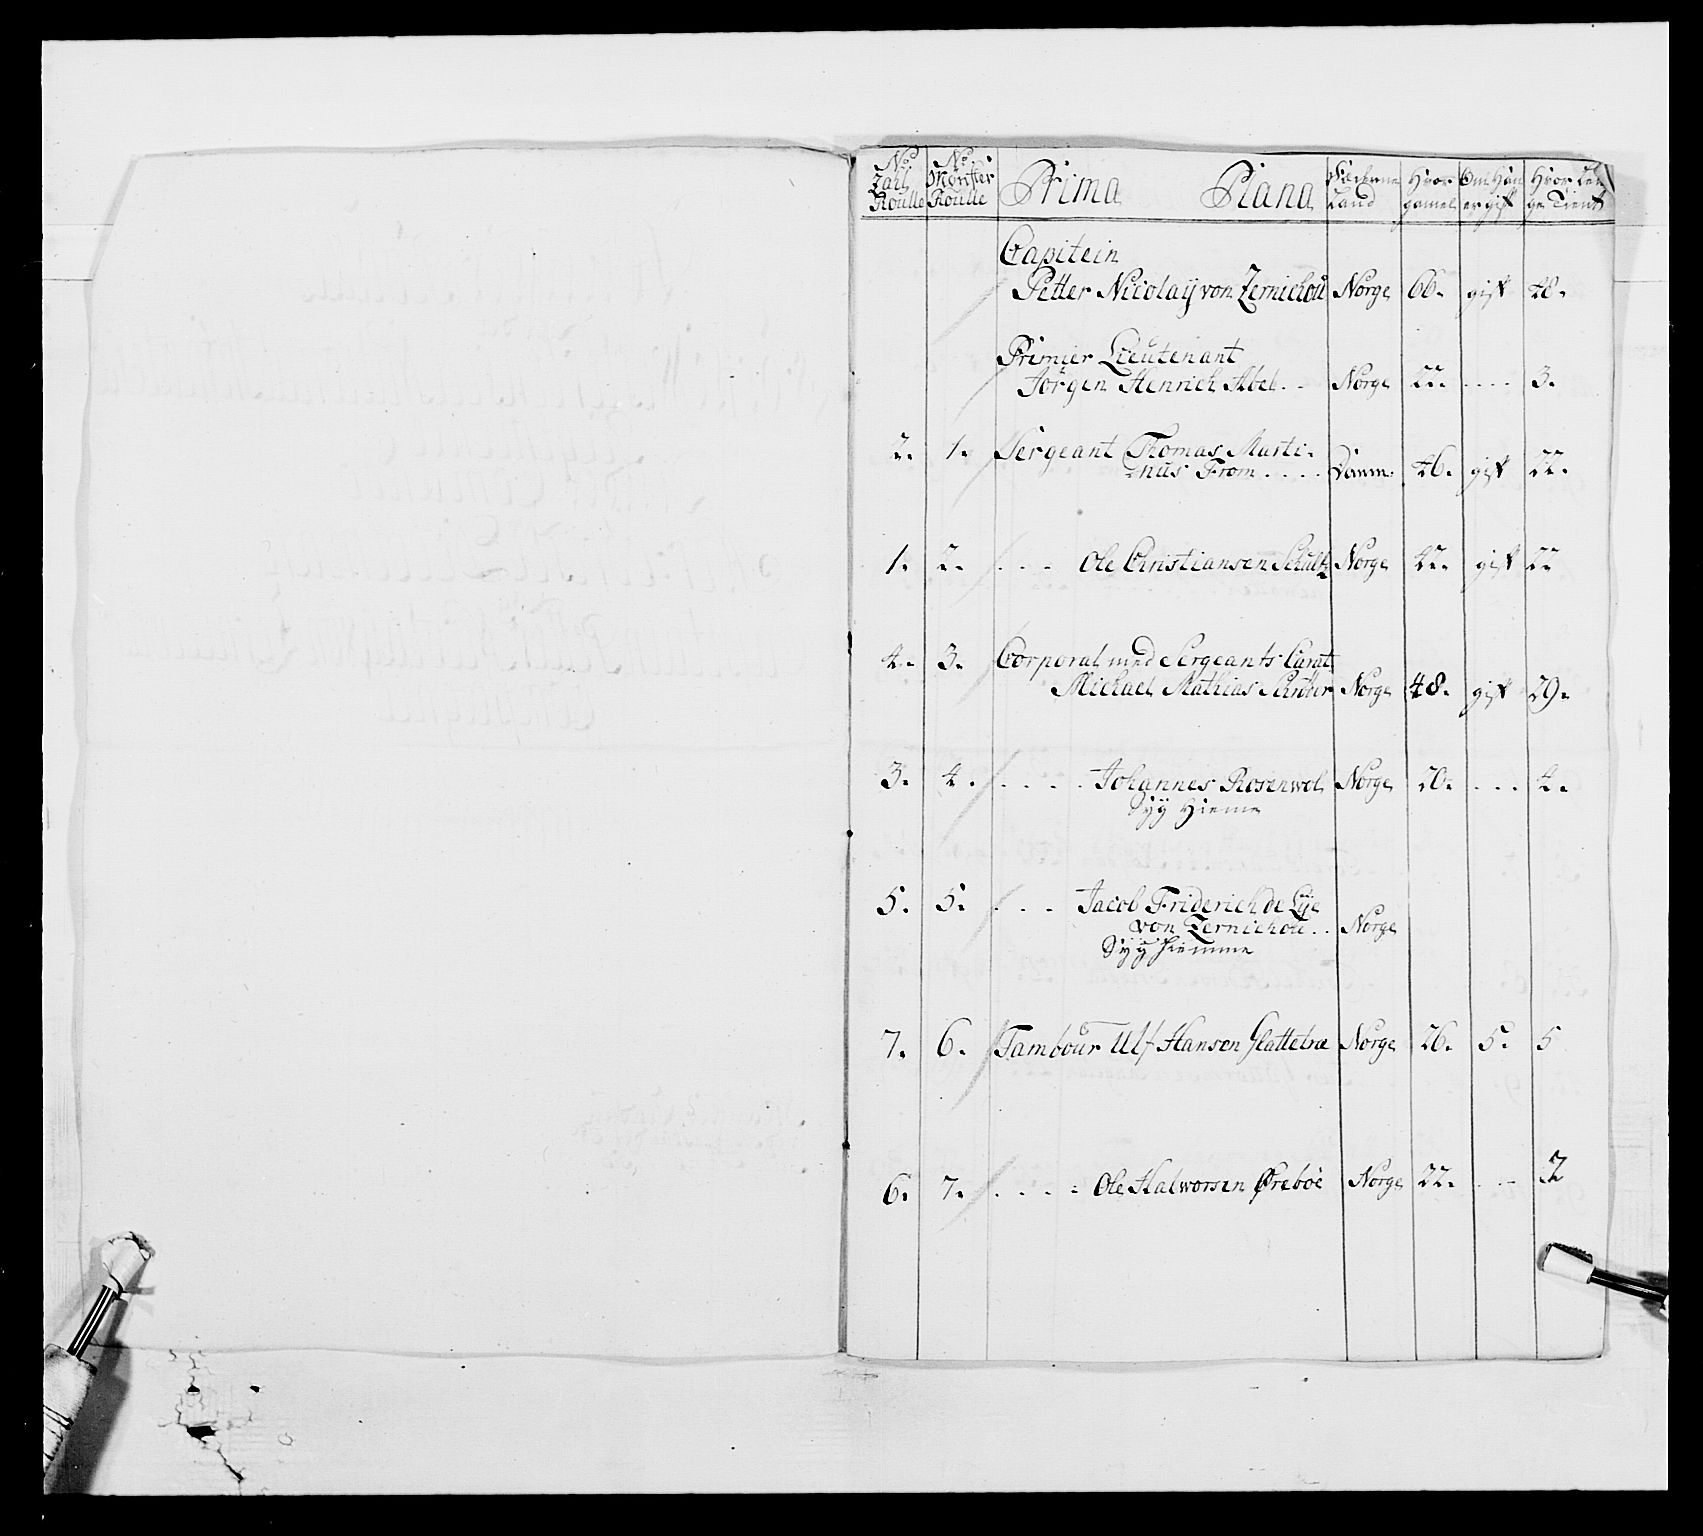 No Zarl Roulle | No Mønster Roulle | Prima Plana | Fæderne Land | Hvor gamel | Om Han er gift | Hvor Længe Tient
Capitein
Petter Nicolaÿ von Zernichou | Norge | 66. | gift | 48.
Primier Lieutenant
Jörgen Henrich Abel . . | Norge | 22. | . . . . | 3.
2. | 1. | Sergeant Thomas Marti-
nus From . . . . | Danm: | 46. | gift | 22.
1. | 2. | . . . Ole Christiansen Schultz | Norge | 42. | gift | 22
4. | 3. | Corporal med Sergeants Carat
Michael Mathias Schröter | Norge | 48. | gift | 29.
3. | 4. | . . . . Johannes Rosenwol | Norge | 20. | . . . | 4.
Syg Hieme
5. | 5. | . . . Jacob Friderich de Lÿe
von Zernichou . . | Norge
Syg hiemme
7. | 6. | Tambour Ulf Hansen Slattetræ | Norge | 26. | 5. | 5
6. | 7. | . . . . Ole Halworsen Øreboe | Norge | 22. | . . . | 2